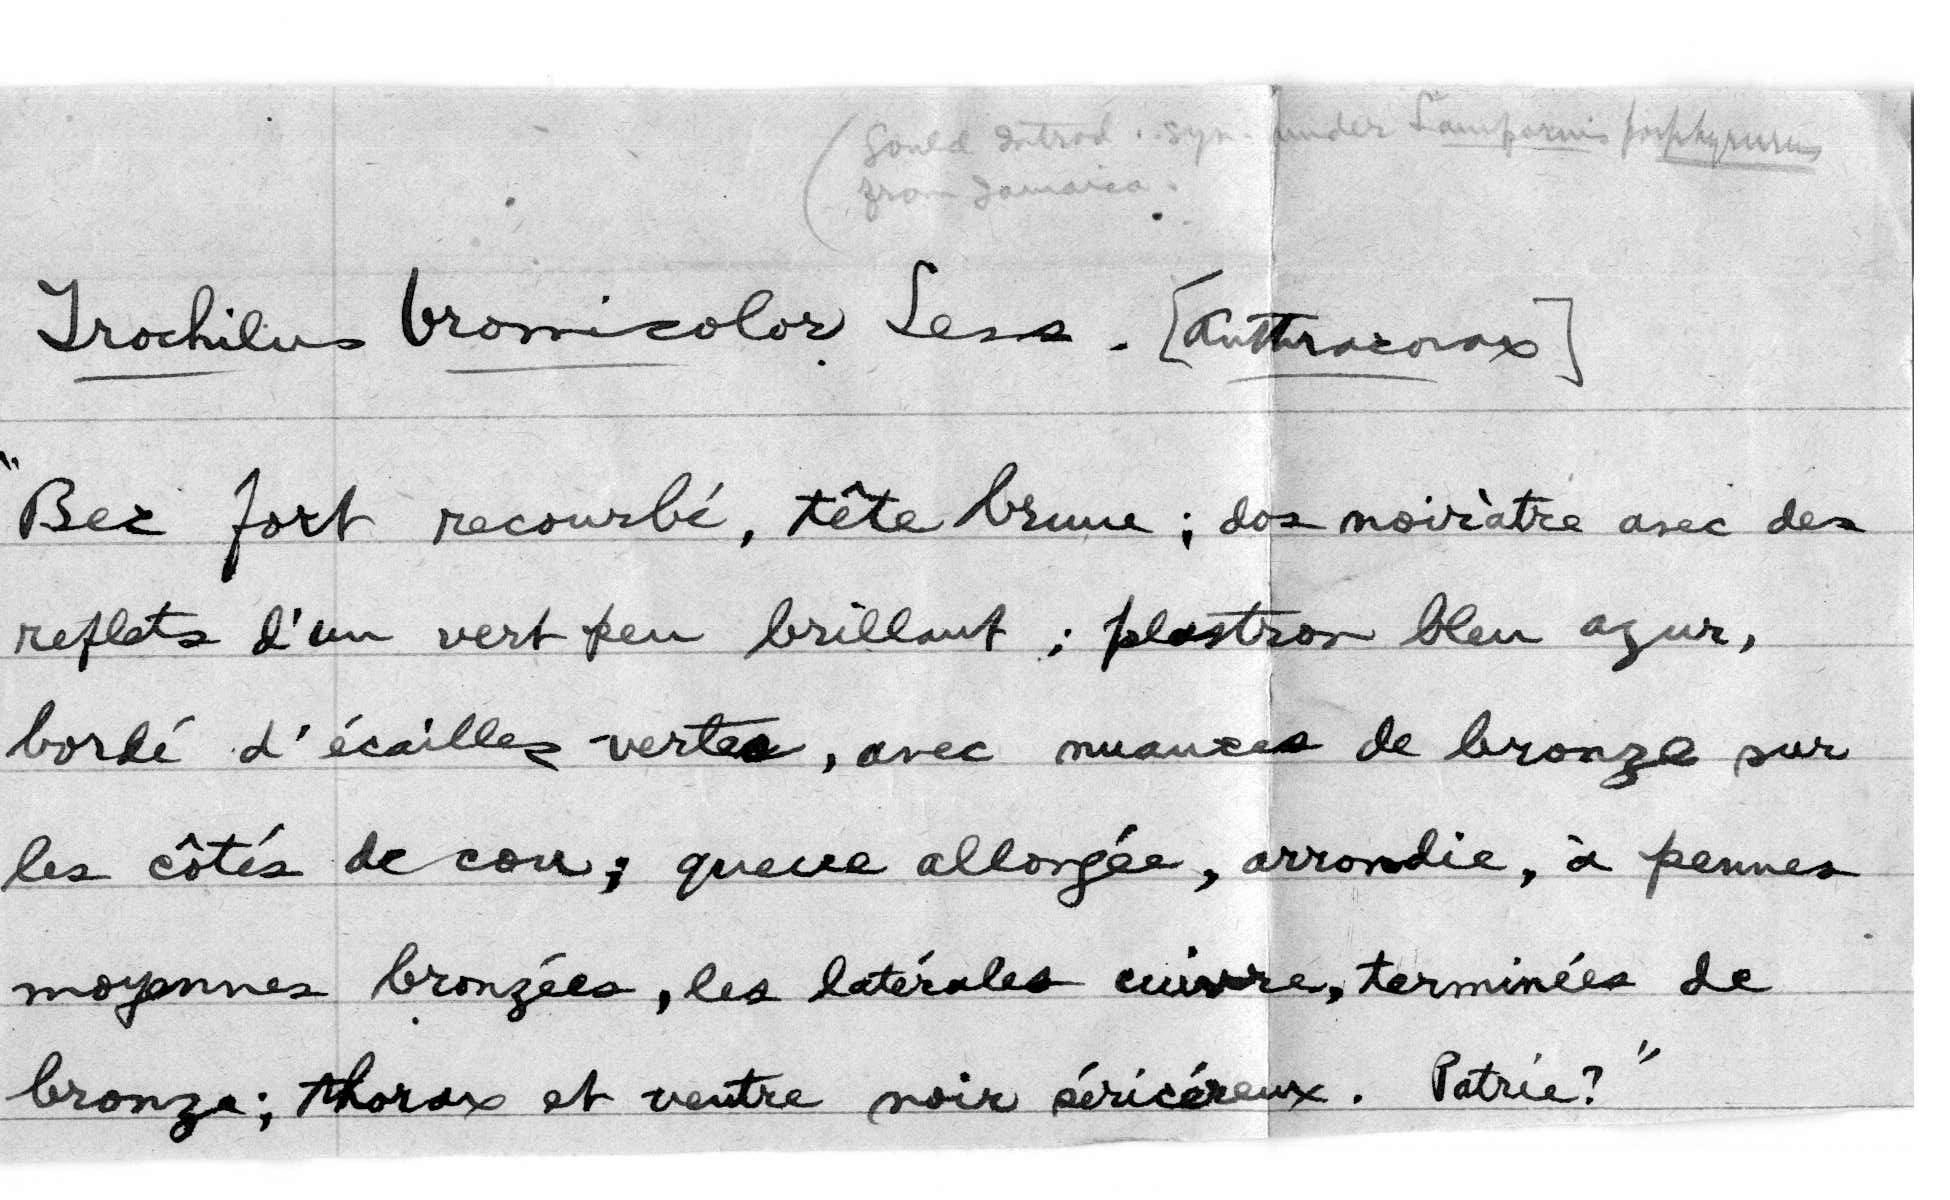 (Gould Introd. syn. under Lampornis porphyrurus
from Jamaica.
Trochilus bromicolor Less. [Anthracorax]
"Bec fort recourbé, tête brune ; dos noirâtre avec des
reflets d'un vert peu brillant ; plastron bleu azur,
bordé d'écailles vertes, avec nuances de bronze sur
les côtés de cou ; queue allongée, arrondie, à pennes
moyennes bronzées, les latérales cuivre, terminées de
bronze ; thorax et ventre noir séricéreux. Patrie ?"